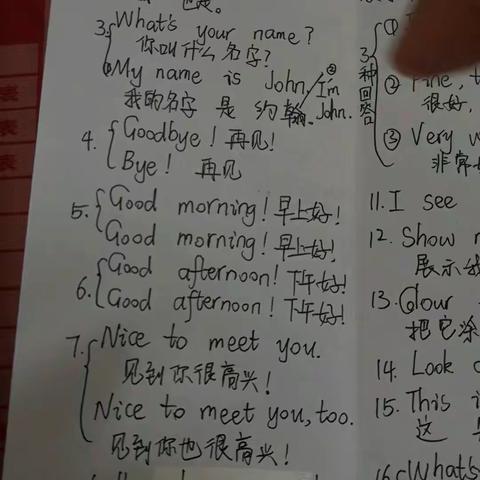 3. What's your name?
你叫什么名字?
① My name is John.
② I'm John.
我的名字 是 约翰.
4. Goodbye! 再见!
Bye! 再见
5. Good morning! 早上好!
Good morning! 早上好!
6. Good afternoon! 下午好!
Good afternoon! 下午好!
7. Nice to meet you.
见到你很高兴!
Nice to meet you, too.
见到你也很高兴!
3种回答
①
② Fine,
很好,
③ Very
非常
11. I see
12. Show
展示
13. Colour
把它涂
14. Look
15. This
这
16. What's